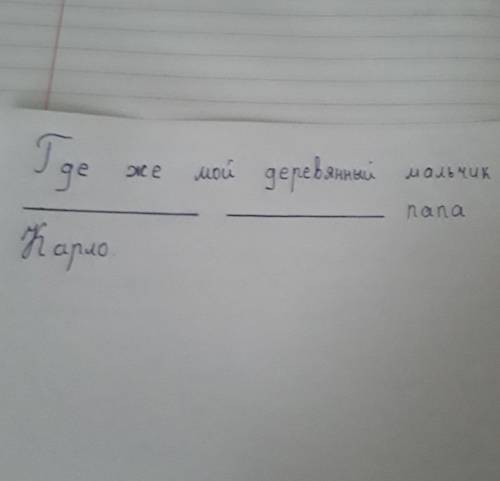 Где же мой деревянный мальчик
__________ __________ папа
Карло.